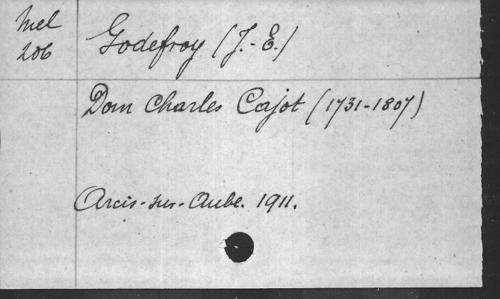 Mel
206
Godefroy (J.-E.)
Dom Charles Cajot (1731-1807)
Arcis-sur-Aube. 1911.